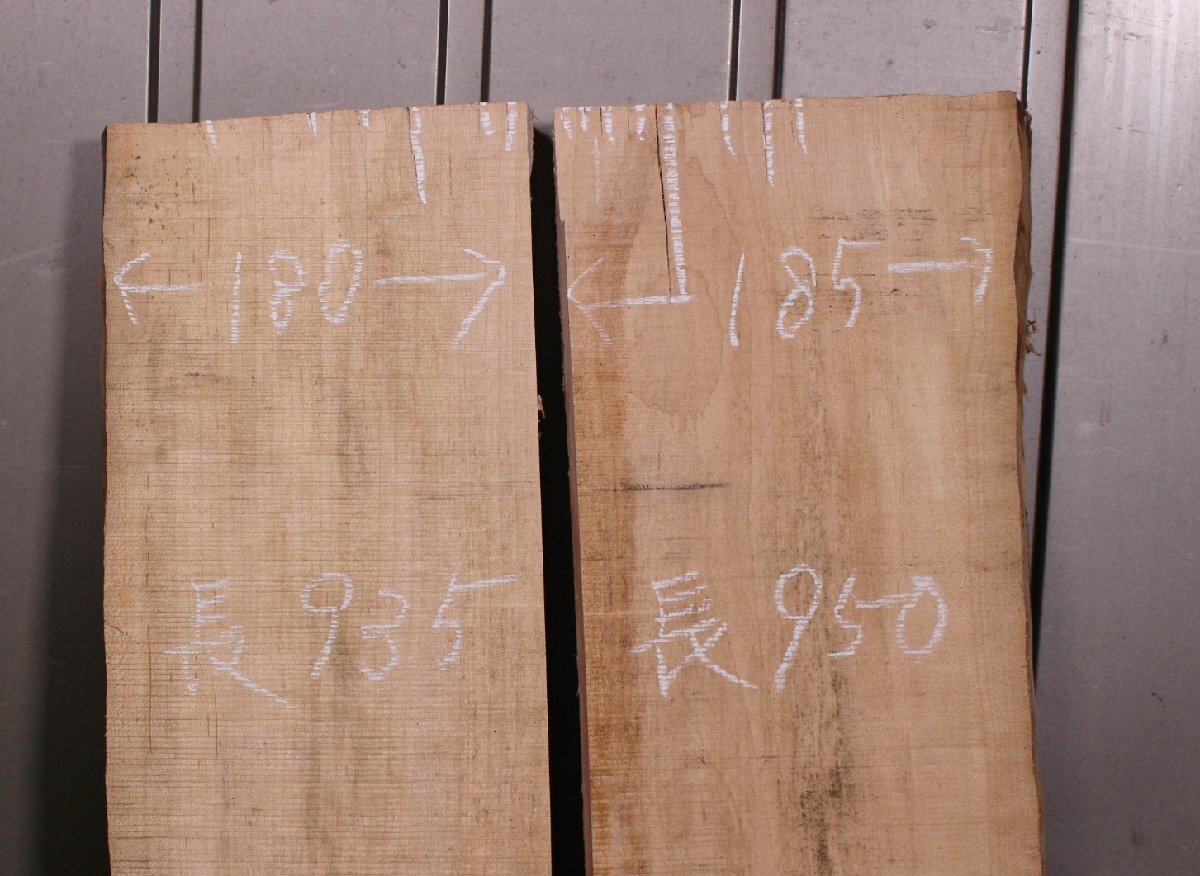 ←180→
←185→
長935
長950